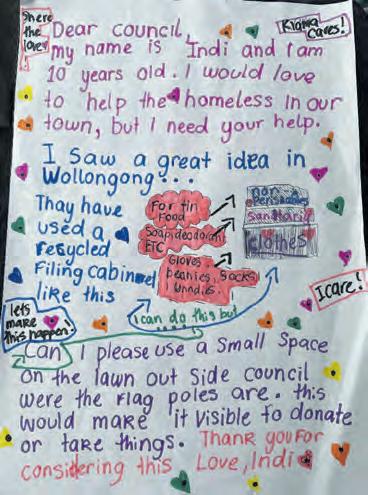 Share
the
love!
Kiama
Cares!
Dear council,
my name is Indi and I am
10 years old. I would love
to help the homeless in our
town, but I need your help.
I saw a great idea in
Wollongong...
Thay have
used a
recycled
Filing cabinnel
like this
For tin
Food
Soap,deodorant
ETC
Gloves
beanies, Socks
Unndies.
non
Perishables
Sanitary
Clothes
I care!
lets
make
this happen!
I can do this but
Can I please use a Small Space
on the lawn out Side council
were the Flag poles are. this
would make it visible to donate
or take things. Thank you For
considering this Love, Indi